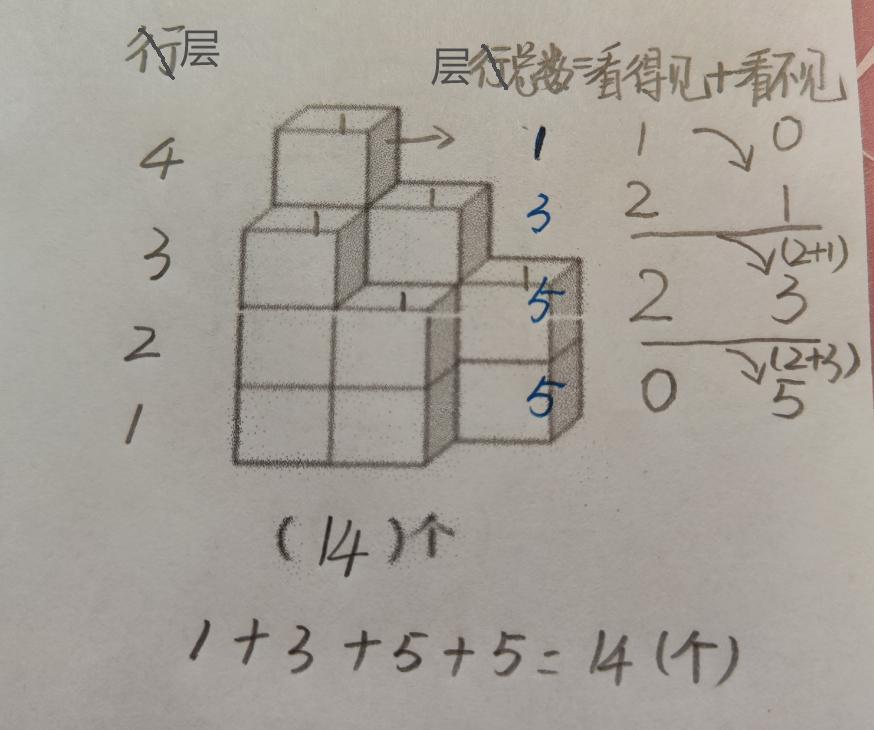 行层
层行总数=看得见+看不见
4 1 1 1 0
3 1 1 3 2 1
(2+1)
2 1 1 5 2 3
(2+3)
1 5 0 5
(14)个
1+3+5+5=14(个)